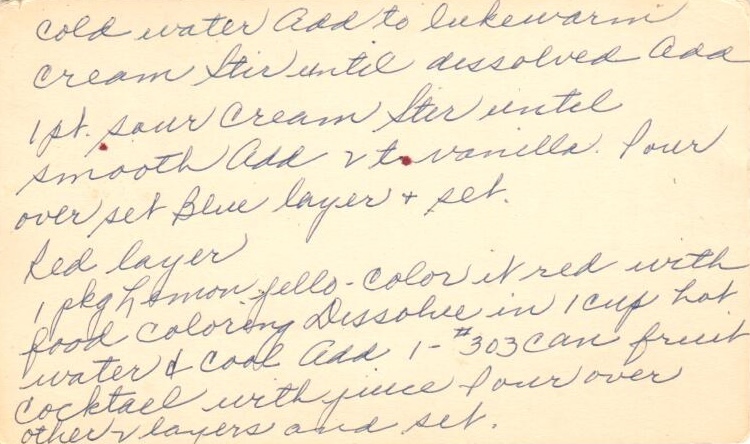 cold water Add to lukewarm
cream Stir until dissolved Add
1 pt. sour cream Stir until
smooth Add 2 t. vanilla. Pour
over set Blue layer + set.
Red layer
1 pkg Lemon jello - color it red with
food coloring Dissolve in 1 cup hot
water & cool Add 1 - #303 can fruit
cocktail with juice Pour over
other 2 layers and set.